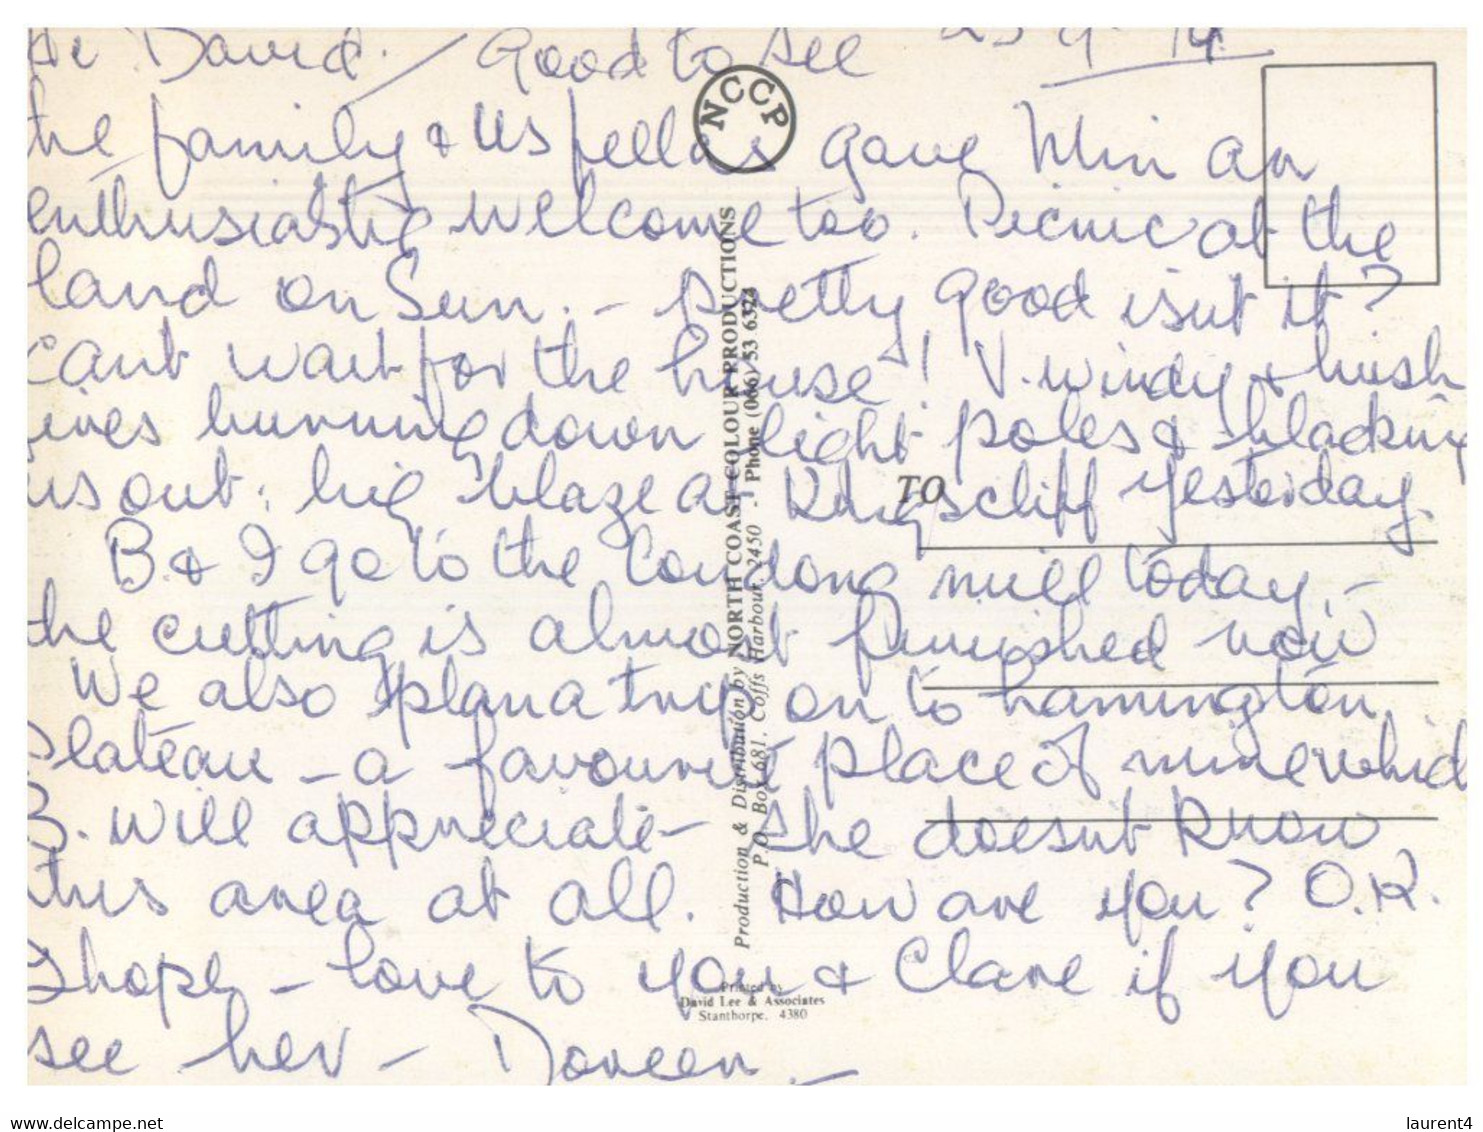 Hi David. / Good to see
the family & us fellas gave Min an
enthusiastic welcome too. Picnic at the
land on Sun. – pretty good isnt it?
cant wait for the house! V. windy & bush
fires burning down light poles & blacking
us out. big blaze at Kingscliff yesterday.
B. & I go to the Condong mill today, –
the cutting is almost finished now
We also plan a trip on to Lamington
Plateau – a favourite place of mine which
B. will appreciate – she doesnt know
this area at all. How are you? O.K.
I hope – love to you & Clare if you
see her – Doreen –
NCCP
TO
Production & Distribution by NORTH COAST COLOUR PRODUCTIONS
P.O. Box 681, Coffs Harbour, 2450 - Phone (066) 53 6324
Printed by
David Lee & Associates
Stanthorpe. 4380
www.delcampe.net
laurent4